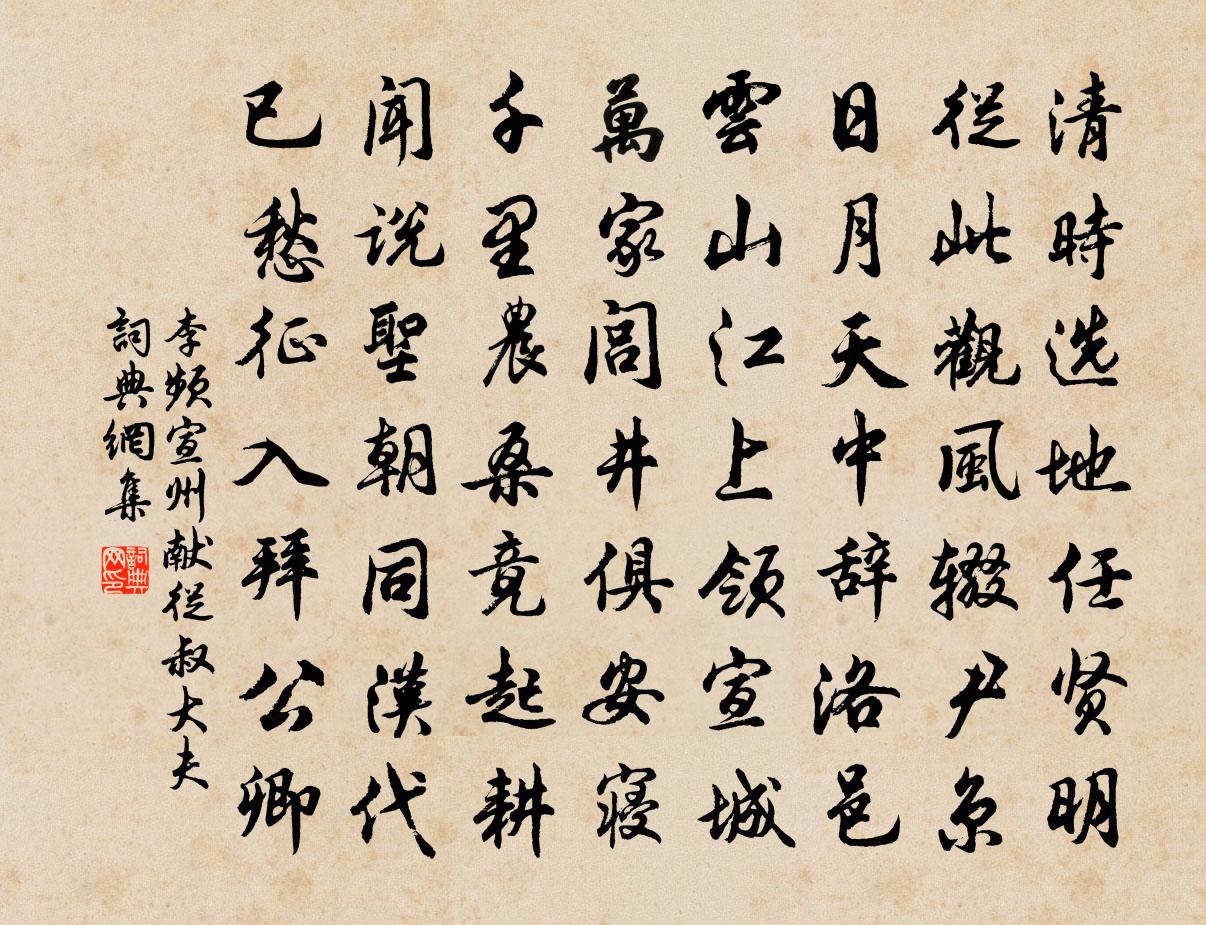 清時选地任贤明
從此觀風辍尹京
日月天中辞洛邑
雲山江上領宣城
萬家閭井俱安寝
千里農桑竟起耕
聞説聖朝同漢代
已愁征入拜公卿
李頻宣州献從叔大夫
詞典網集
詞典网印